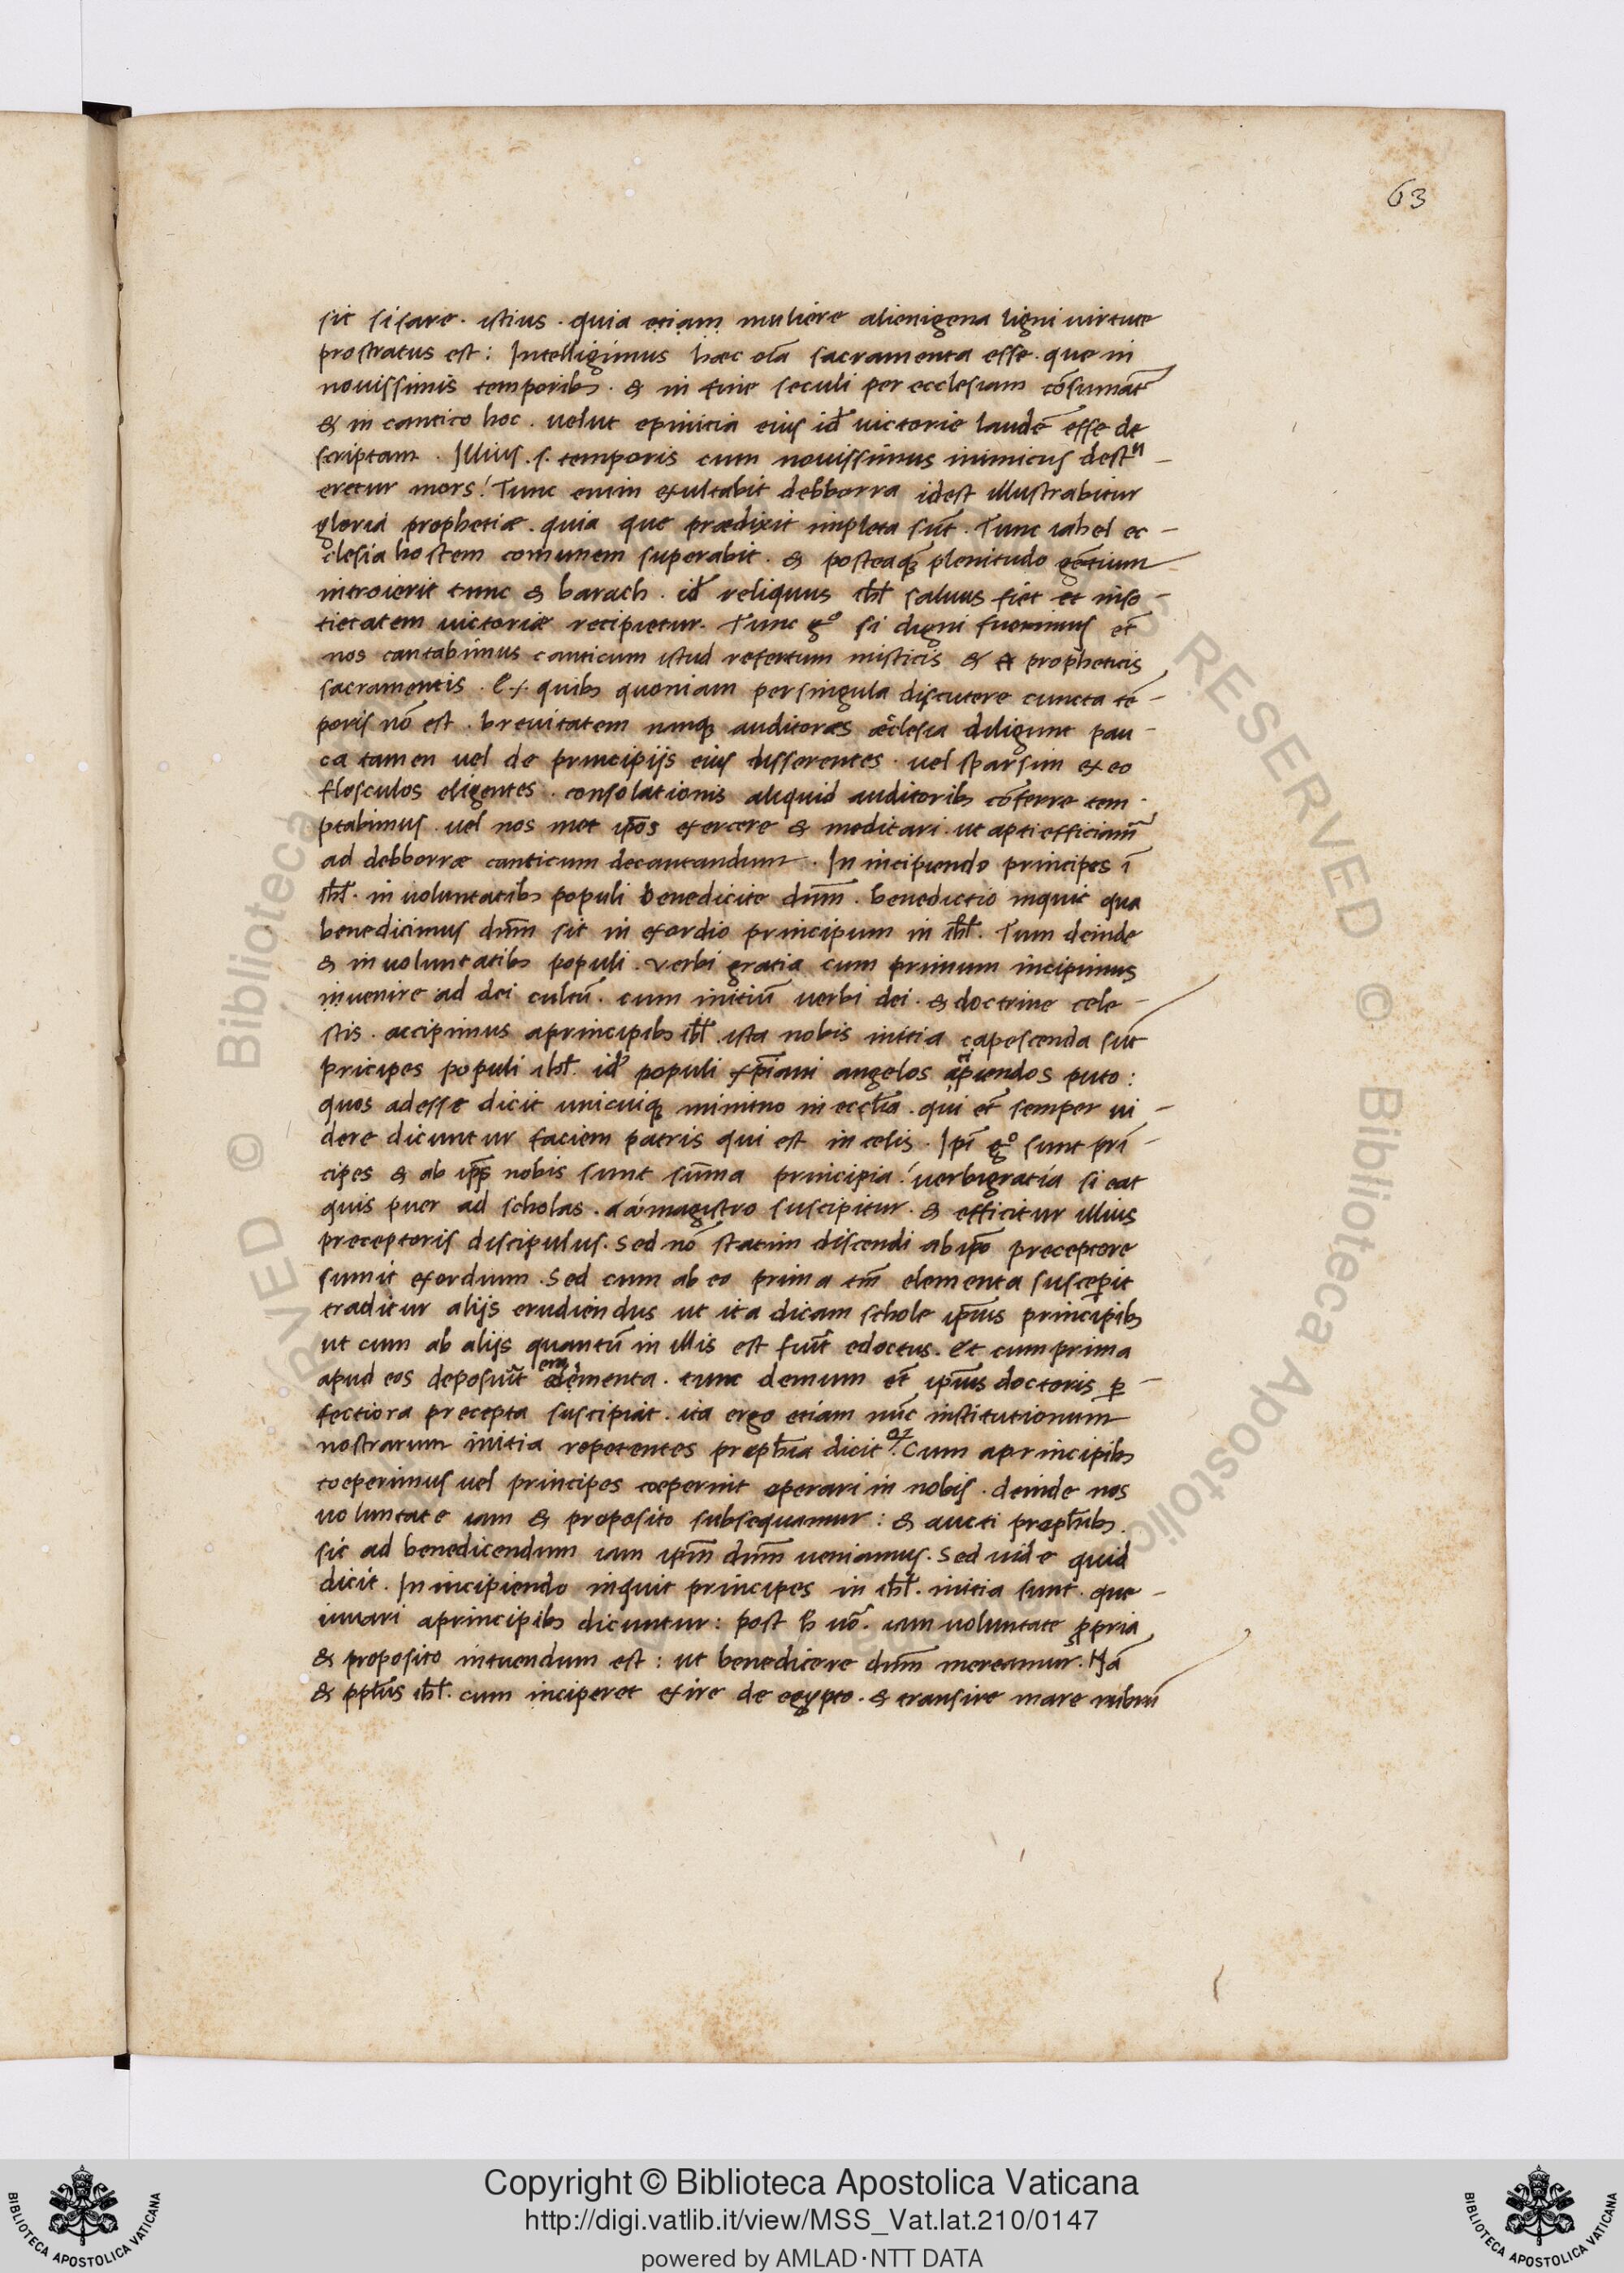 63
sit sisare. istius. quia etiam muliere alienigena ligni uirtute
prostratus est: Intelligimus hæc oīa sacramenta esse. que in
nouissimis temporibꝫ. & in fine seculi per ecclesiam cōsumāt᷑
& in cantico hoc. uelut epinicia eius id̄ uictorie laudē esse de
scriptam. Illius .s. temporis cum nouissimus inimicus destru-
eretur mors! Tunc enim exultabit debborra idest illustrabitur
gloria prophetiæ. quia que prædixit impleta sūt. Tunc iahel ec-
clesia hostem comunem superabit. & posteaqꝫ plenitudo gētium
introierit tunc & barach. id̄ reliquus isrl̄ saluus fiet et inso-
tietatem uictoriæ recipietur. Tunc gº si digni fuerimus et̄
nos cantabimus canticum istud refertum misticis & propheticis
sacramentis. Ex quibꝫ quoniam per singula discutere cuncta tē-
poris nō est. breuitatem nanqꝫ auditores æclesia diligunt pau-
ca tamen uel de principijs eius disserentes. uel sparsim ex eo
flosculos eligentes. consolationis aliquid auditoribꝫ cōferre tem-
ptabimus. uel nos met ip̄os exercere & meditari. ut apti efficiam᷑
ad debborræ canticum decantandum. In incipiendo principes ī
isrl̄. in uoluntatibꝫ populi benedicite dn̄m. benedictio inquit qua
benedicimus dn̄m sit in exordio principum in isrl̄. Tum deinde
& in uoluntatibꝫ populi. verbi gratia cum primum incipimus
inuenire ad dei cultū. cum initiū uerbi dei. & doctrine cele-
stis. accipimus aprincipibꝫ isrl̄. ista nobis initia capescenda sūt
pricipes populi isrl̄. id̄ populi xp̄iani angelos puto:
quos adesse dicit unicuiqꝫ minimo in eccl̄ia. qui et̄ semper ui-
dere dicuntur faciem patris qui est in celis. Ip̄i gº sunt prī-
cipes & ab ip̄s nobis sunt sūma principia! uerbigratia si eat
quis puer ad scholas. a magistro suscipitur. & efficitur illius
preceptoris discipulus. sed nō statim discendi ab ip̄o preceptore
sumit exordium. Sed cum ab eo prima tm̄ elementa susceꝑit
traditur alijs erudiendus ut ita dicam schole ip̄ius principibꝫ
ut cum ab alijs quantū in illis est fuīt edoctus. et cum prima
apud eos deposuīt elementa. tunc demum et̄ ip̄ius doctoris ꝑ-
fectiora precepta suscipiat. ita ergo etiam nūc institutionum
nostrarum initia repetentes proph̄ia dicit. Cum aprincipibꝫ
coeperimus uel principes coeperint operari in nobis. deinde nos
uoluntate iam & proposito subsequamur: & aucti proph̄ibꝫ.
sic ad benedicendum iam ip̄m dn̄m ueniamus. Sed uide quid
dicit. In incipiendo inquit principes in isrl̄. initia sunt. que-
iuuari aprincipibꝫ dicuntur: post h̄ uō. iam uoluntate ꝓpria
& proposito intuendum est: ut benedicere dn̄m mereamur. Nā
& ppl̄us isrl̄. cum inciperet exire de egypto. & transire mare rubrū
Copyright © Biblioteca Apostolica Vaticana
http://digi.vatlib.it/view/MSS_Vat.lat.210/0147
powered by AMLAD·NTT DATA